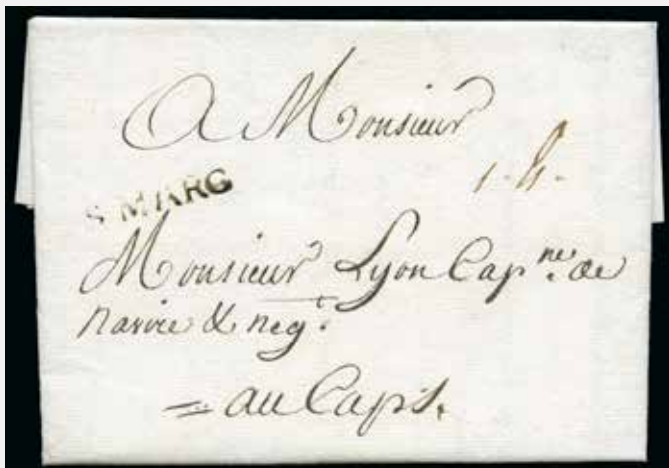 A Monsieur
S. MARC
Monsieur Lyon Cap.ne de
navire & neg.t
= au Cap